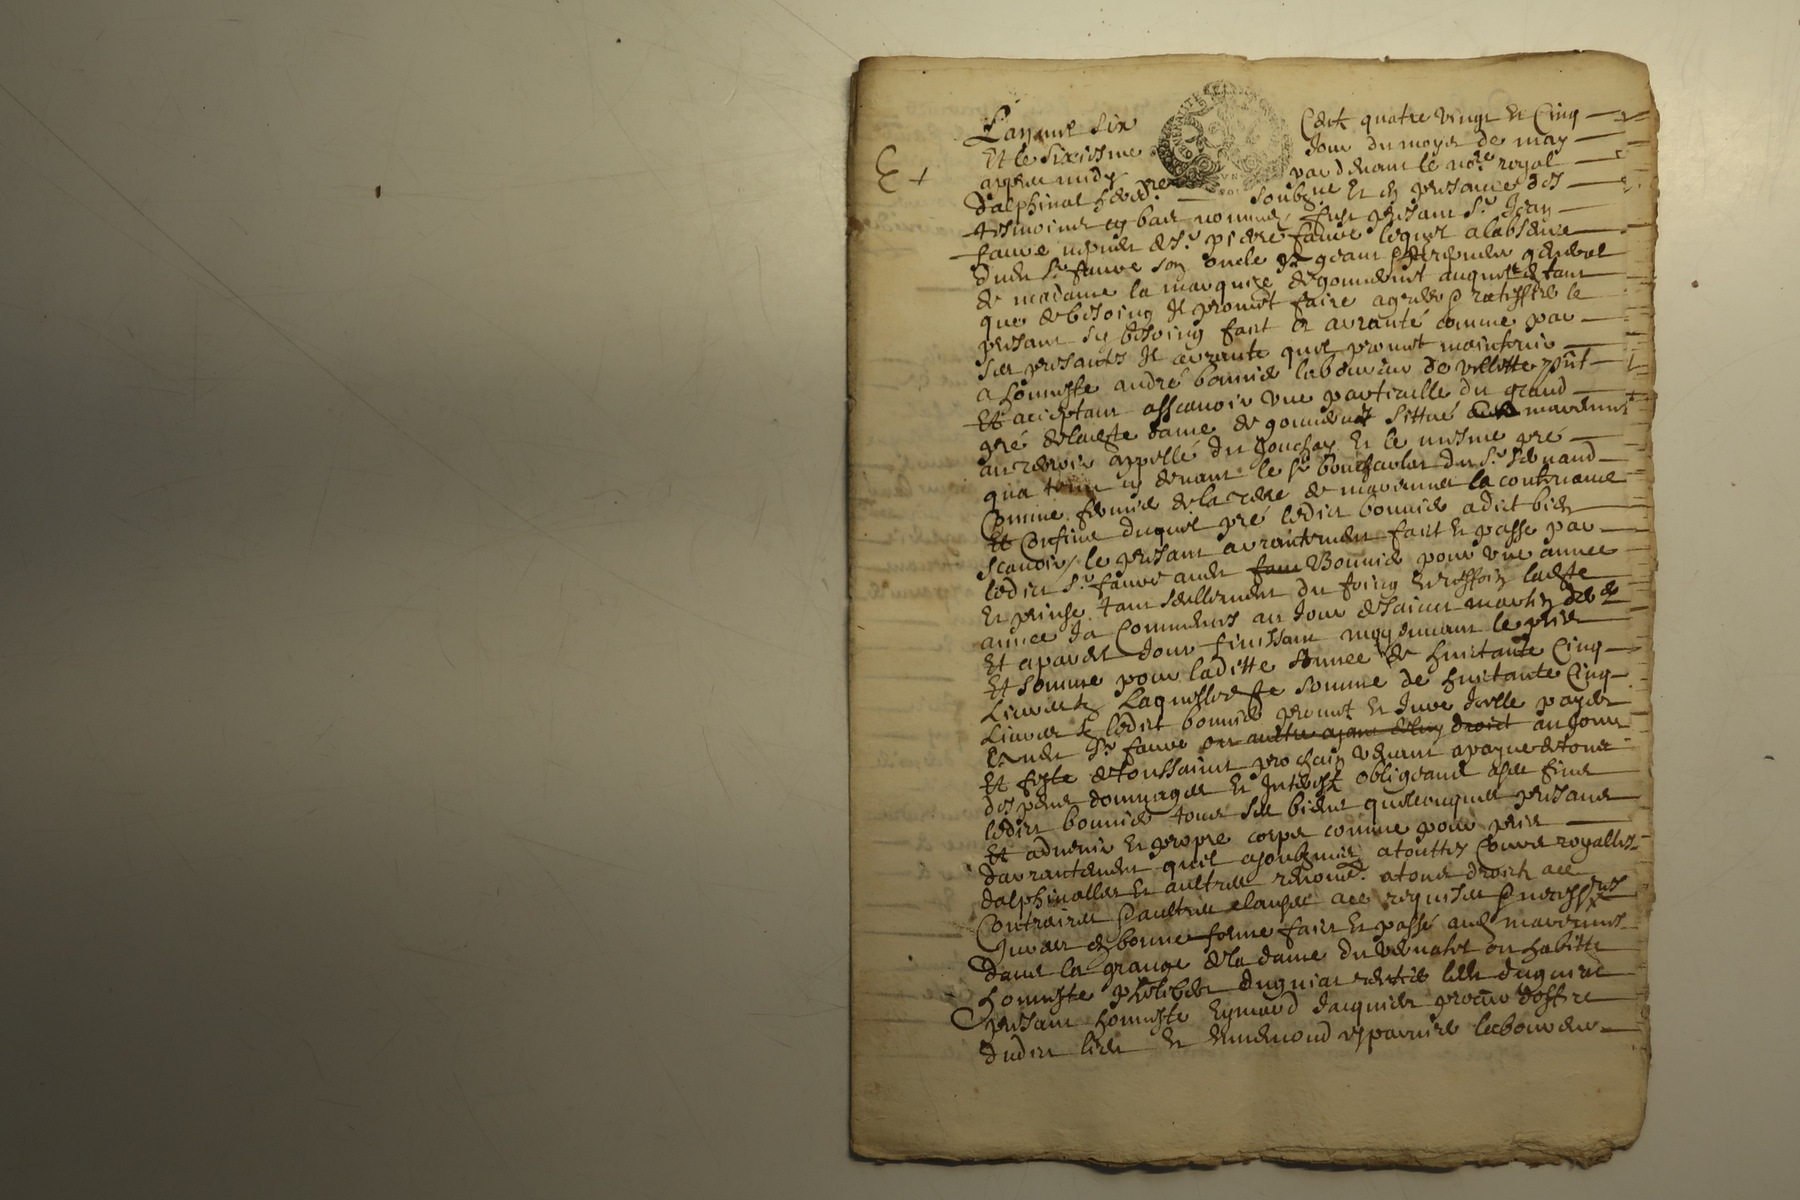 Lan mil six Cent quatre vingt et Cinq
Et le sixiesme Jour du moys de may
apres midy par devant le no.re royal
dalphinal hered.re soubz.ne et en presance des
tesmoins cy bas nommés, fust presant S.r Jean
faure nepveu de S.r pierre faure lequel a labsence
dudit S.r faure son oncle general
de madame la marquise de gouvernet auquel et tant
que de besoing Il promet faire agreer ratiffier le
presant sy besoing fait et arranté comme par
ses presantes Il arrante quil promet maintenir
a honneste andré bonnier laboureur de villette pnt
Et acceptant asscavoir une particulle du grand
pré de ladite dame de gouvernet sittué marennes
au terroir appellé du bouchay Et le mesme pré
qua tenu cy devant le S.r du S.r
Comme fermier de la terre de marennes la contenance
Et Confins duquel pré ledict bonnier a dict bien
scavoir, le presant arrantement faict et passé par
ledict S.r faure audit Bonnier pour une année
Et prinse tant seullement du foing ladite
année Ja Commencée au Jour de saint martin
Et a pareil Jour finissant moyenant le prix
Et somme pour laditte Année de huictante Cinq
Livres Laquelle somme de huictante Cinq
Livres ledict bonnier promet et Jure Icelle payer
audit S.r faure ou aultre ayant de luy droict au Jour
Et feste de Toussaint prochain venant a payne de tous
despens dommages et Interest obligeant a ses fins
ledict bonnier tous ses biens quelconques presans
Et advenir et propre corps comme pour prix
darrantement quil a soubzmis a touttes Cours royalles
dalphinalles et aultres renoncé a tous droits ace
Contraires aultres clauses ace requises
en bonne forme faict et passé aud marennes
dans la grange de la dame du ou habitte
honneste
presant honneste Eymard Jacquier
dudict lieu et laboureur